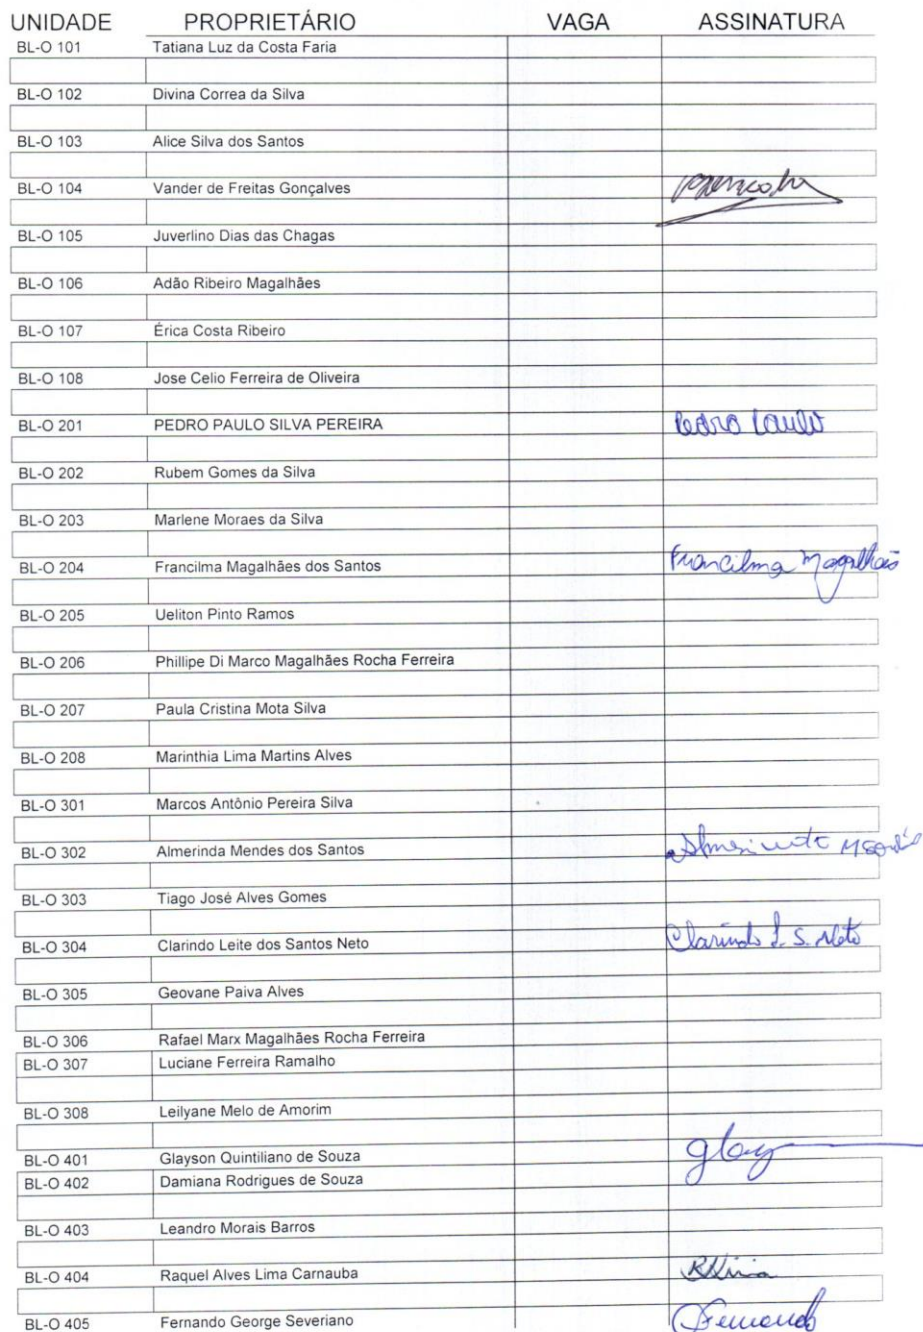 UNIDADE PROPRIETÁRIO VAGA ASSINATURA
BL-O 101 Tatiana Luz da Costa Faria
BL-O 102 Divina Correa da Silva
BL-O 103 Alice Silva dos Santos
BL-O 104 Vander de Freitas Gonçalves
BL-O 105 Juverlino Dias das Chagas
BL-O 106 Adão Ribeiro Magalhães
BL-O 107 Érica Costa Ribeiro
BL-O 108 Jose Celio Ferreira de Oliveira
BL-O 201 PEDRO PAULO SILVA PEREIRA Pedro Paulo
BL-O 202 Rubem Gomes da Silva
BL-O 203 Marlene Moraes da Silva
BL-O 204 Francilma Magalhães dos Santos Francilma Magalhães
BL-O 205 Ueliton Pinto Ramos
BL-O 206 Phillipe Di Marco Magalhães Rocha Ferreira
BL-O 207 Paula Cristina Mota Silva
BL-O 208 Marinthia Lima Martins Alves
BL-O 301 Marcos Antônio Pereira Silva
BL-O 302 Almerinda Mendes dos Santos
BL-O 303 Tiago José Alves Gomes
BL-O 304 Clarindo Leite dos Santos Neto Clarindo L. S. Neto
BL-O 305 Geovane Paiva Alves
BL-O 306 Rafael Marx Magalhães Rocha Ferreira
BL-O 307 Luciane Ferreira Ramalho
BL-O 308 Leilyane Melo de Amorim
BL-O 401 Glayson Quintiliano de Souza Glay
BL-O 402 Damiana Rodrigues de Souza
BL-O 403 Leandro Morais Barros
BL-O 404 Raquel Alves Lima Carnauba
BL-O 405 Fernando George Severiano Fernando